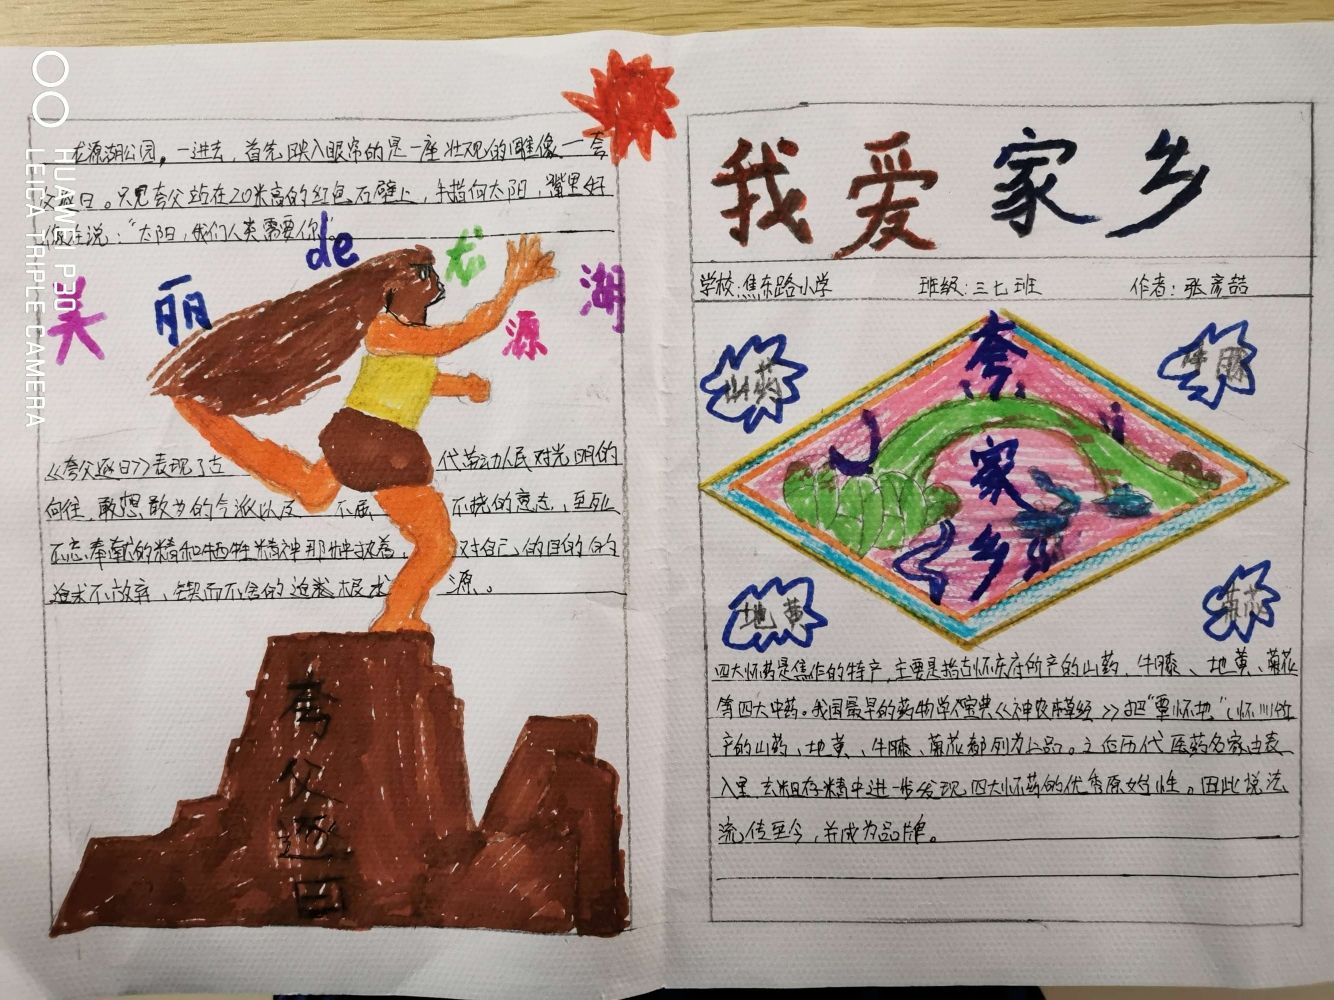 龙源湖公园，一进去，首先映入眼帘的是一座壮观的雕像一夸
父逐日。只见夸父站在20米高的红色石壁上，手指向太阳，嘴里好
像在说："太阳，我们人类需要你"
美丽de龙源湖
《夸父逐日》表现了古代劳动人民对光明的
向往，敢想敢为的气派以及不屈不挠的意志，至死
不忘奉献的精和牺牲精神那种执着，对自己的目的的
追求不放弃，锲而不舍的追求根水源。
夸父逐日
我爱家乡
学校：焦东路小学 班级：三七班 作者：张彦喆
山药
牛膝
夸家乡
地黄
菊花
四大怀药是焦作的特产，主要是指古怀庆府所产的山药、牛膝、地黄、菊花
等四大中药。我国最早的药物学宝典《神农本草经》把"覃怀地"（怀川）
产的山药、地黄、牛膝、菊花都列为上品。历代医药名家由表
入里、去粗存精中进一步发现四大怀药的优秀原始性。因此说流
流传至今，并成为品牌。
HUAWEI P30
LEICA TRIPLE CAMERA